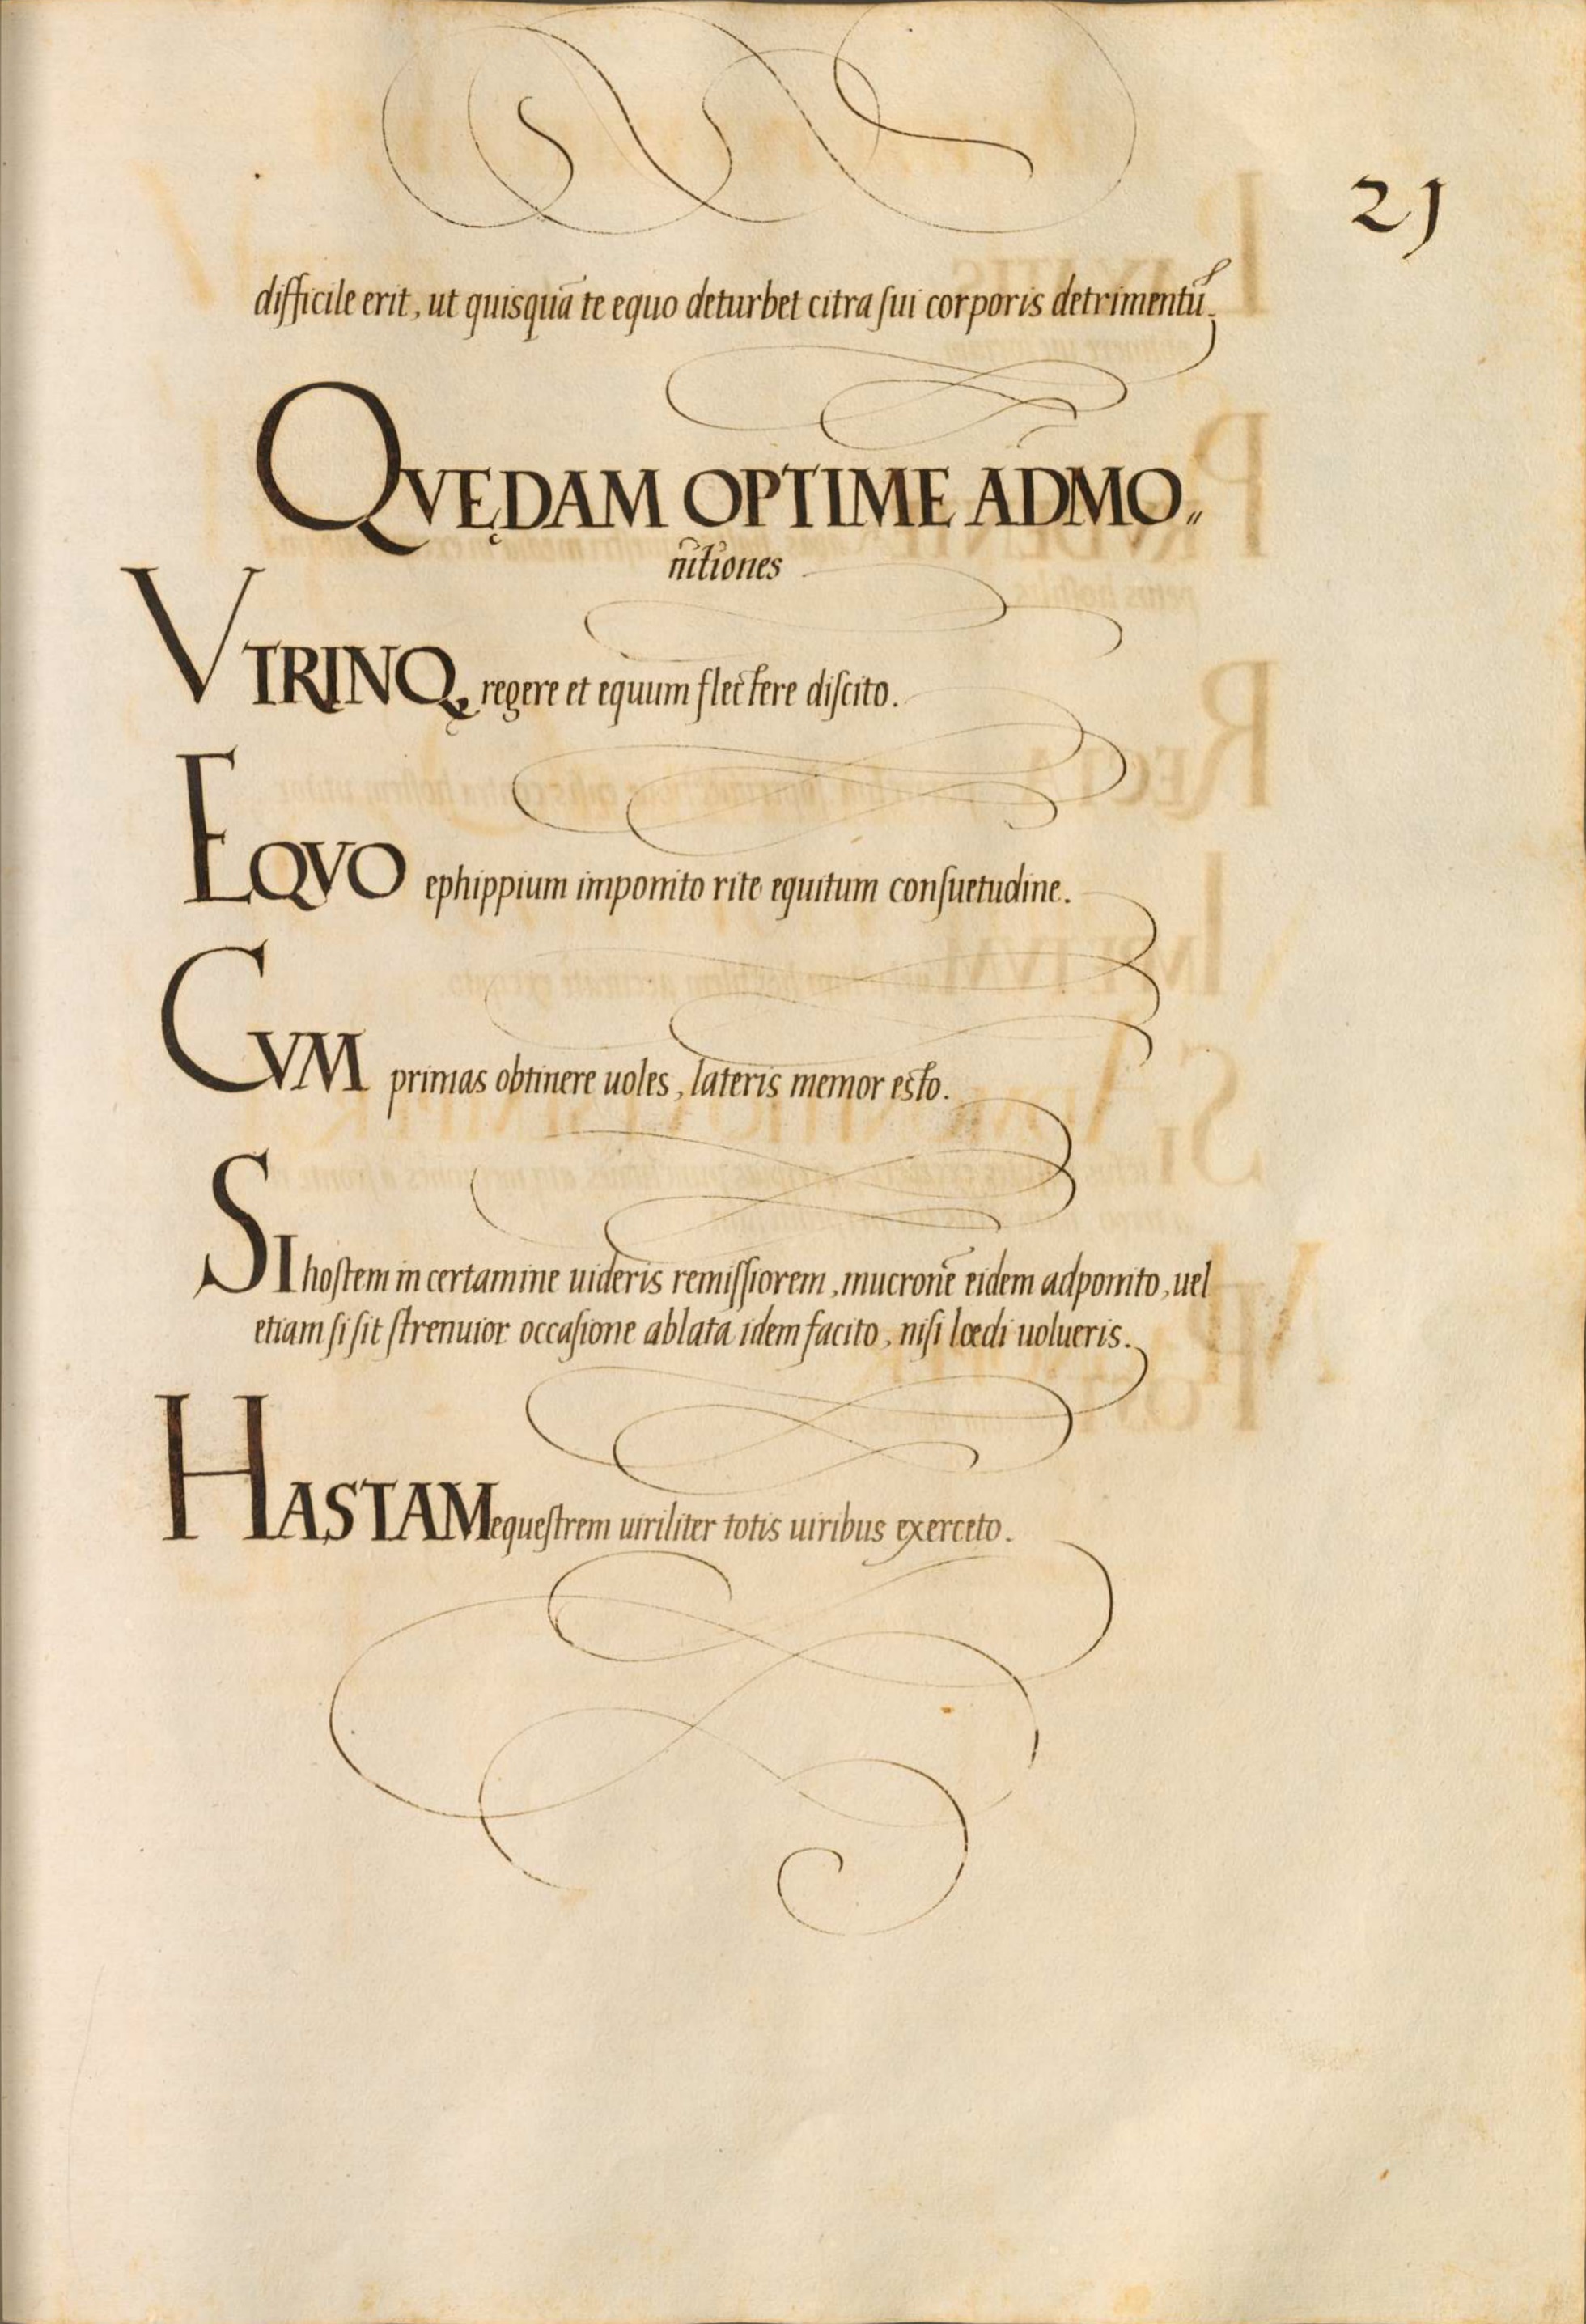 21
difficile erit, ut quisquā te equo deturbet citra ſui corporis detrimentū.
QVĘDAM OPTIME ADMO〃
nitiones
VTRINQ, regere et equum flectere diſcito.
EQVO ephippium imponito rite equitum conſuetudine.
CVM primas obtinere uoles, lateris memor esto.
SI hoſtem in certamine uideris remiſſiorem, mucronē eidem adponito, uel
etiam ſi ſit ſtrenuior occaſione ablata idem facito, niſi lœdi uolueris.
HASTAM equeſtrem uiriliter totis uiribus exerceto.